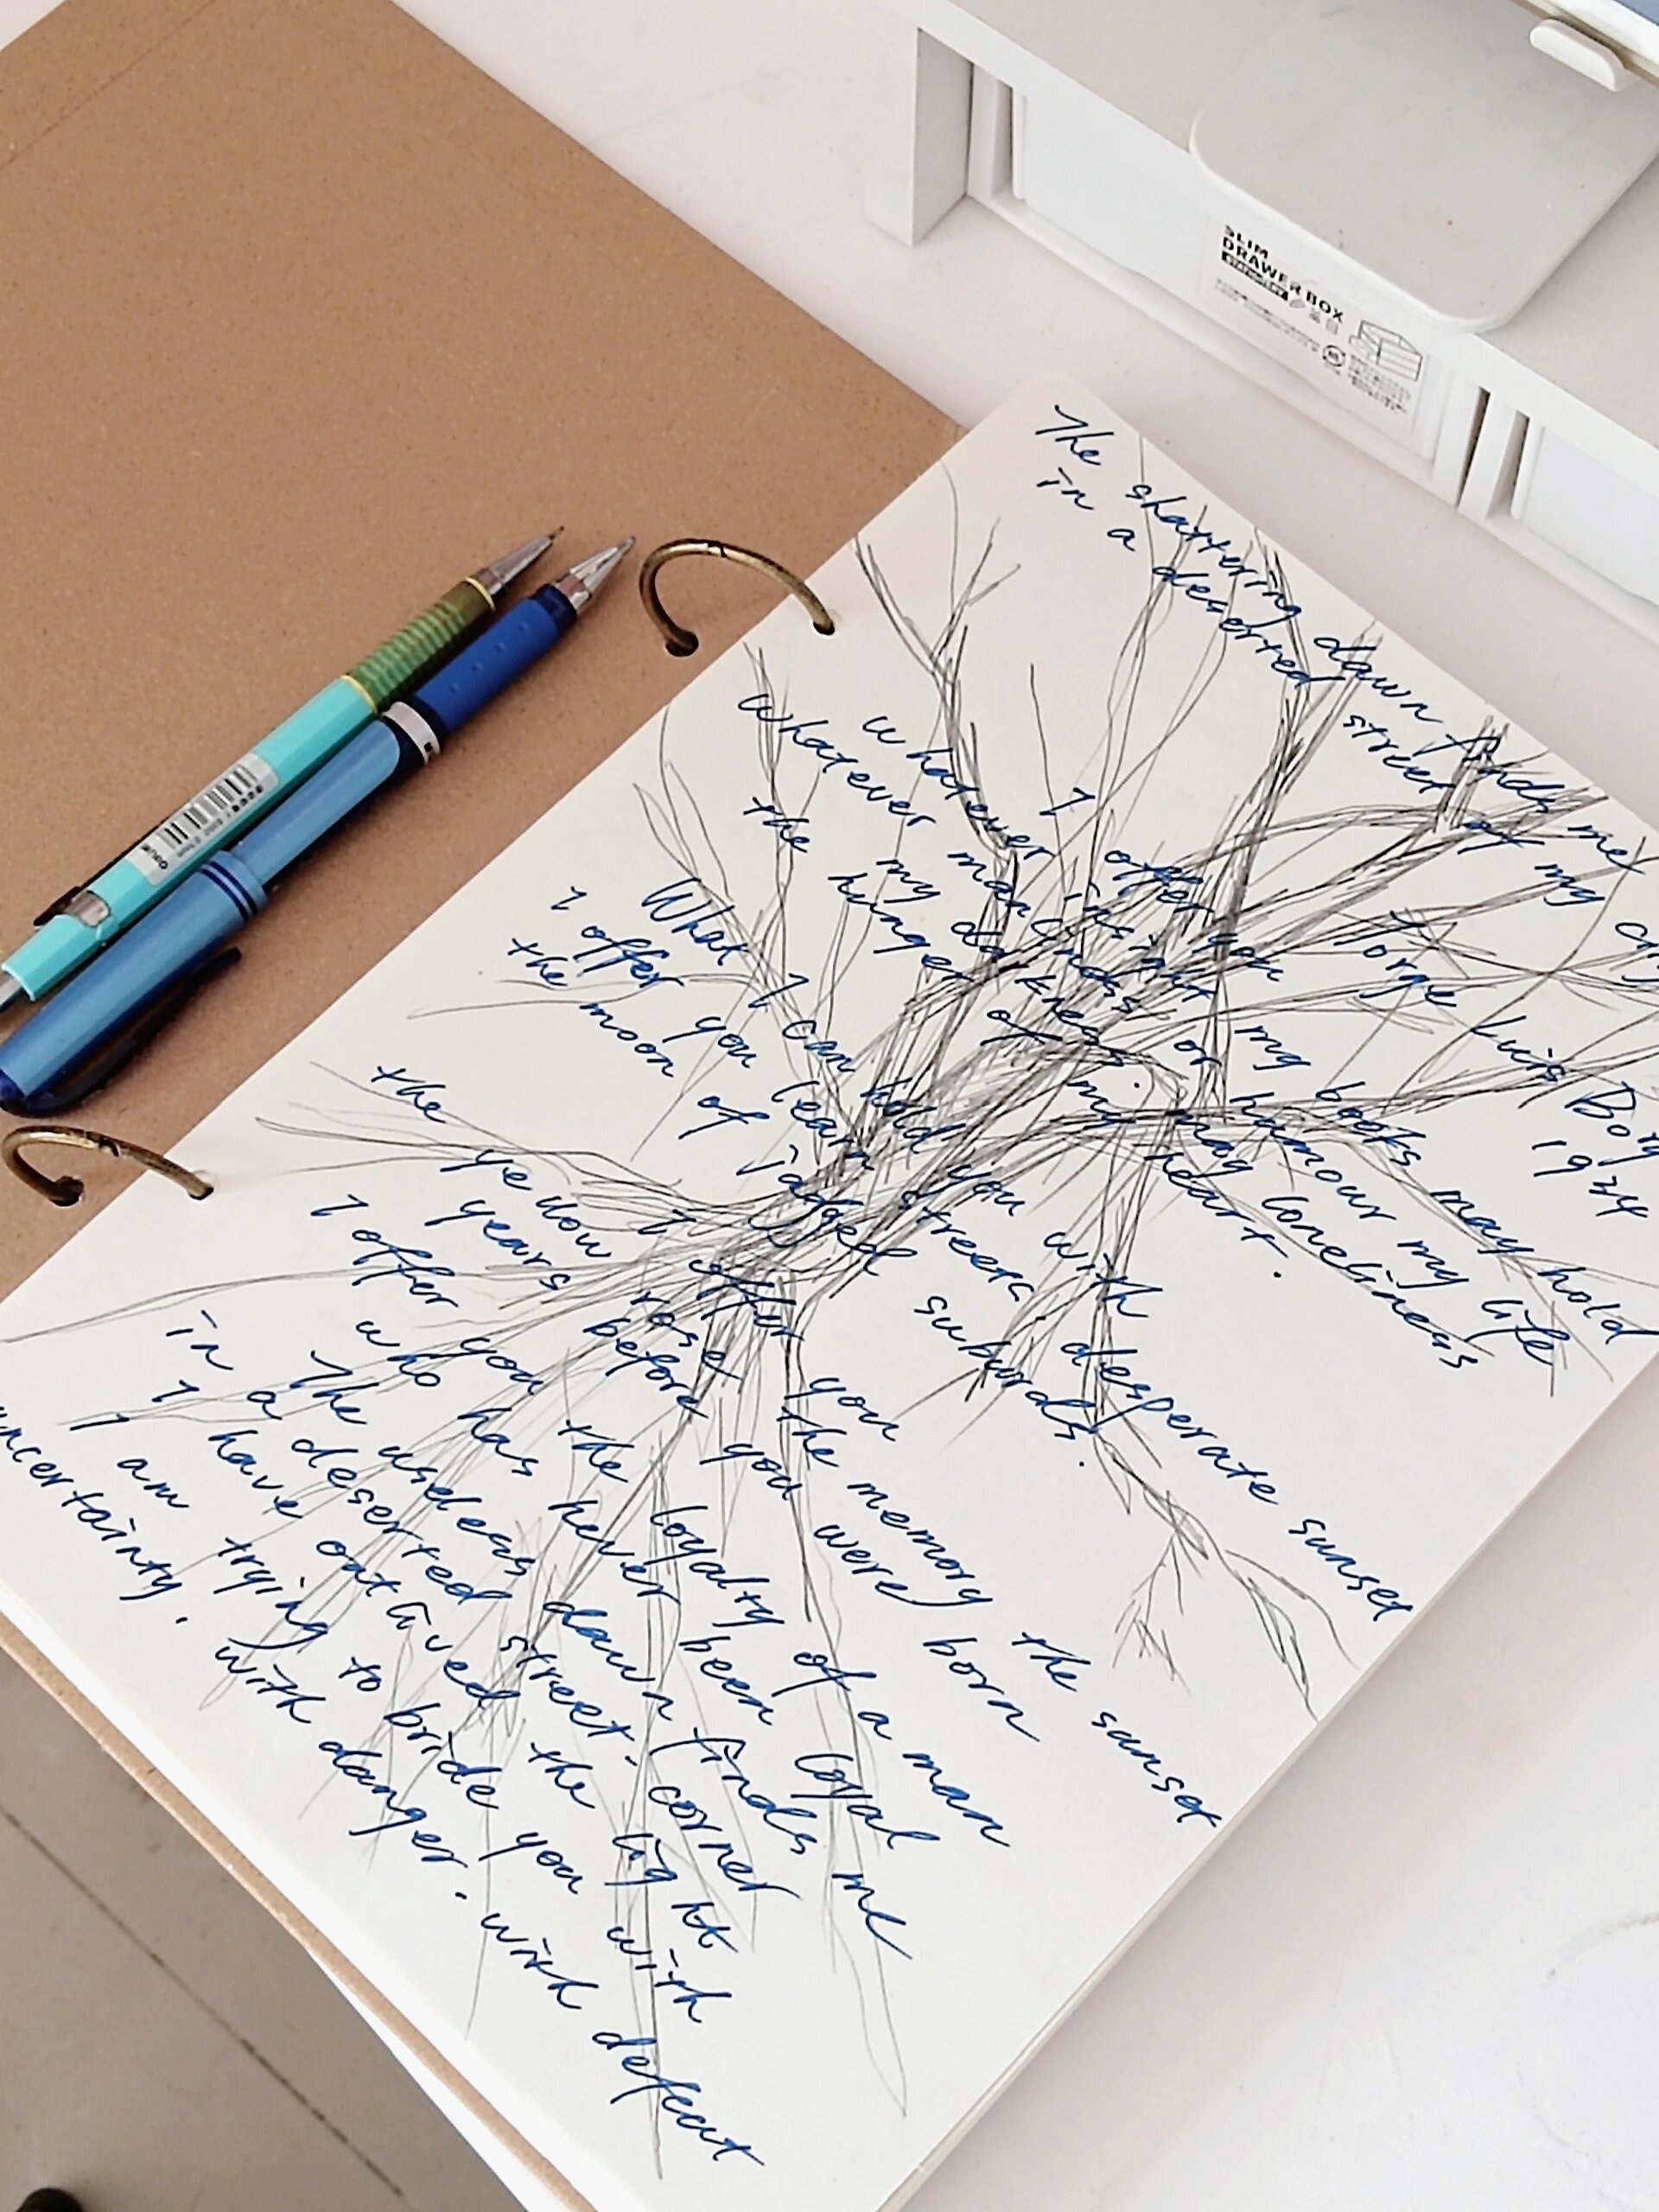 SLIM
DRAWER BOX
STATIONERY
The shattering dawn finds me
in a deserted street of my city
Jorge Luis Borg
1934
I offer you
whatever insight my books may hold
whatever man or humour my life
the my darkness.
hunger of my heart.
What I can hold you with
I offer you lean streets desperate sunset
the moon of jagged suburds.
I offer you the memory the sunset
the yellow rose before you were born
years
I offer you the loyalty of a man
who has never been loyal
The useless dawn finds me
in a deserted street. corner
I have outlived the light
I am trying to bride you with
uncertainty. with danger. with defeat